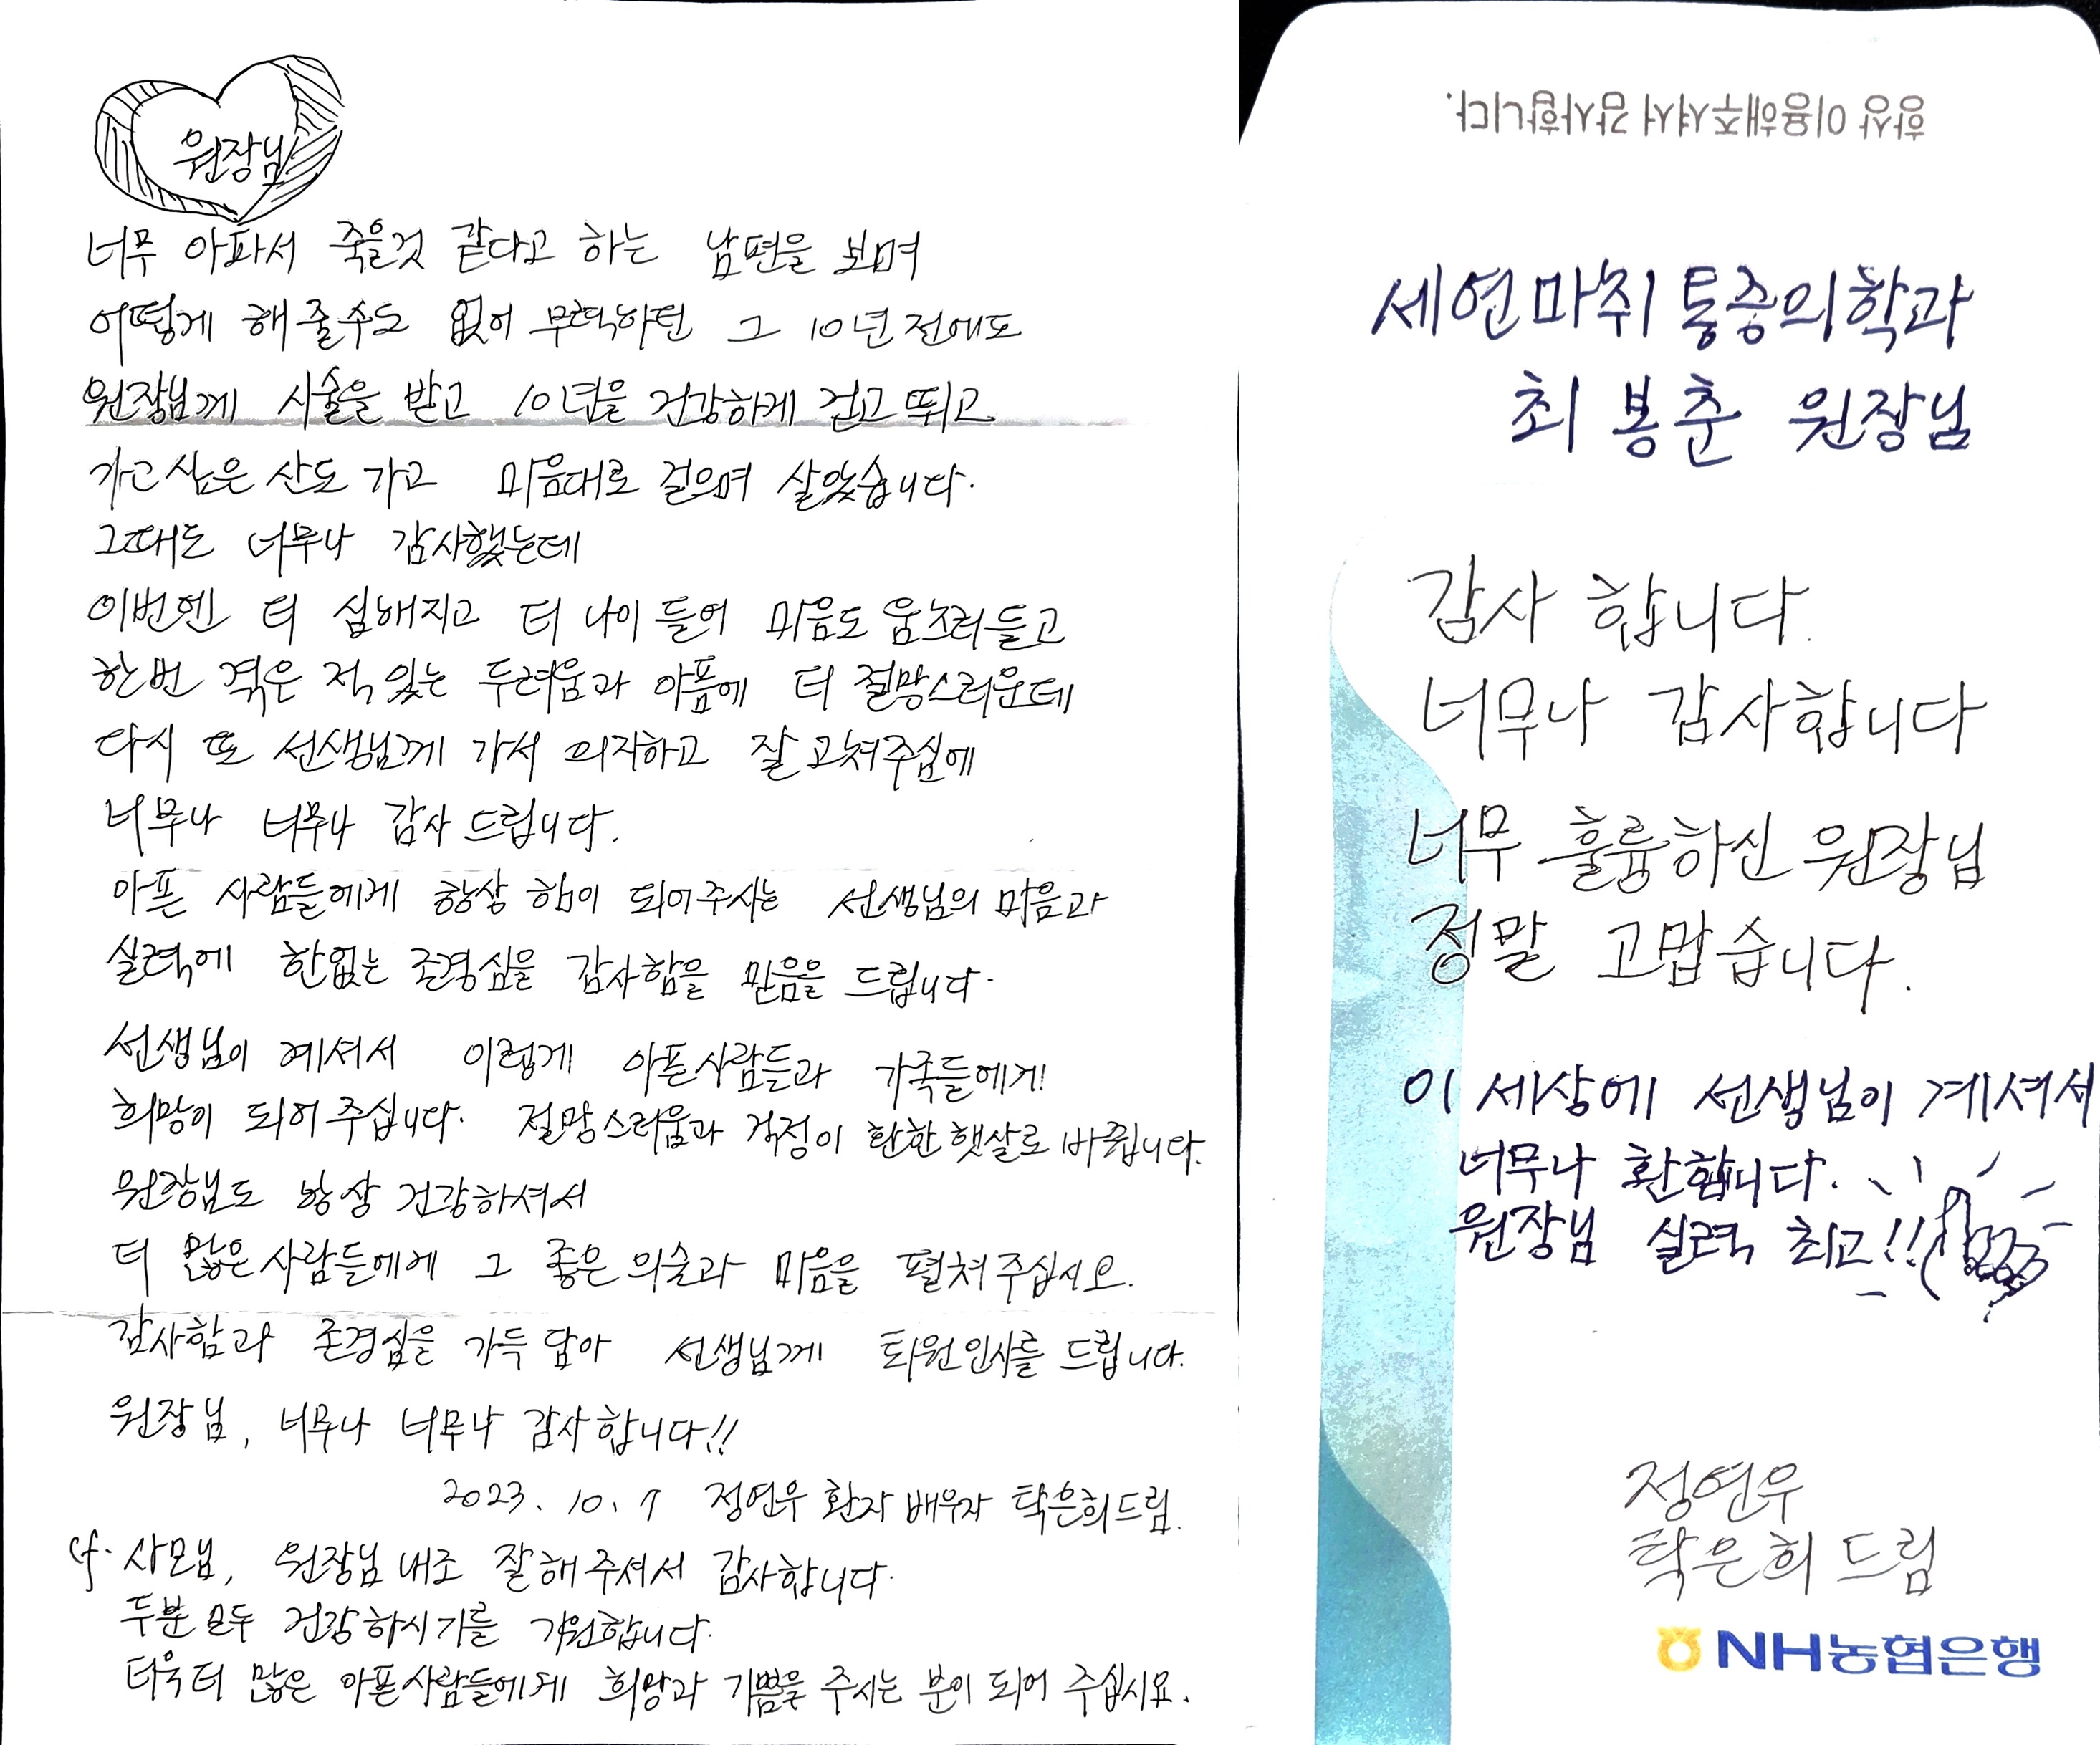 원장님
너무 아파서 죽을것 같다고 하는 남편을 보며
어떻게 해 줄수도 없어 무력하던 그 10년 전에도
원장님께 시술을 받고 10년을 건강하게 걷고 뛰고
가고 싶은 산도 가고 마음대로 걸으며 살았습니다.
그때도 너무나 감사했는데
이번엔 더 심해지고 더 나이 들어 마음도 움츠러들고
한번 겪은 적 있는 두려움과 아픔에 더 절망스러운데
다시 또 선생님께 가서 의지하고 잘 고쳐주심에
너무나 너무나 감사 드립니다.
아픈 사람들에게 항상 힘이 되어주시는 선생님의 마음과
실력에 한없는 존경심을 감사함을 믿음을 드립니다.
선생님이 계셔서 이렇게 아픈사람들과 가족들에게
희망이 되어 주십니다. 절망스러움과 걱정이 환한 햇살로 바뀝니다.
원장님도 항상 건강하셔서
더 많은 사람들에게 그 좋은 의술과 마음을 펼쳐 주십시오.
감사함과 존경심을 가득 담아 선생님께 퇴원인사를 드립니다.
원장님, 너무나 너무나 감사합니다!!
2023. 10. 7 정연우 환자 배우자 탁은희드림.
cf. 사모님, 원장님 내조 잘해 주셔서 감사합니다.
두분 모두 건강하시기를 기원합니다.
더욱더 많은 아픈사람들에게 희망과 기쁨을 주시는 분이 되어 주십시요.
항상 이용해주셔서 감사합니다.
세연마취통증의학과
최봉춘 원장님
감사 합니다.
너무나 감사합니다
너무 훌륭하신 원장님
정말 고맙습니다.
이 세상에 선생님이 계셔서
너무나 환합니다.
원장님 실력 최고!!
정연우
탁은희 드림
NH농협은행